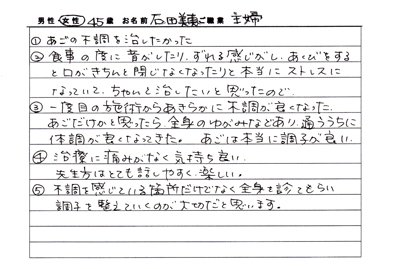 男性 女性 45歳 お名前 石田 ご職業 主婦
① あごの不調を治したかった
② 食事の度に音がしたり、ずれる感じがし、あくびをする
と口がきちんと閉じなくなったりと本当にストレスに
なっていて、ちゃんと治したいと思ったので。
③ 一度目の施術からあきらかに不調が良くなった。
あごだけかと思ったら、全身のゆがみなどあり、通ううちに
体調が良くなってきた。 あごは本当に調子が良い。
④ 治療に痛みがなく気持ち良い
先生方はとても話しやすく、楽しい。
⑤ 不調を感じている箇所だけでなく全身を診てもらい
調子を整えていくのが大切だと思います。